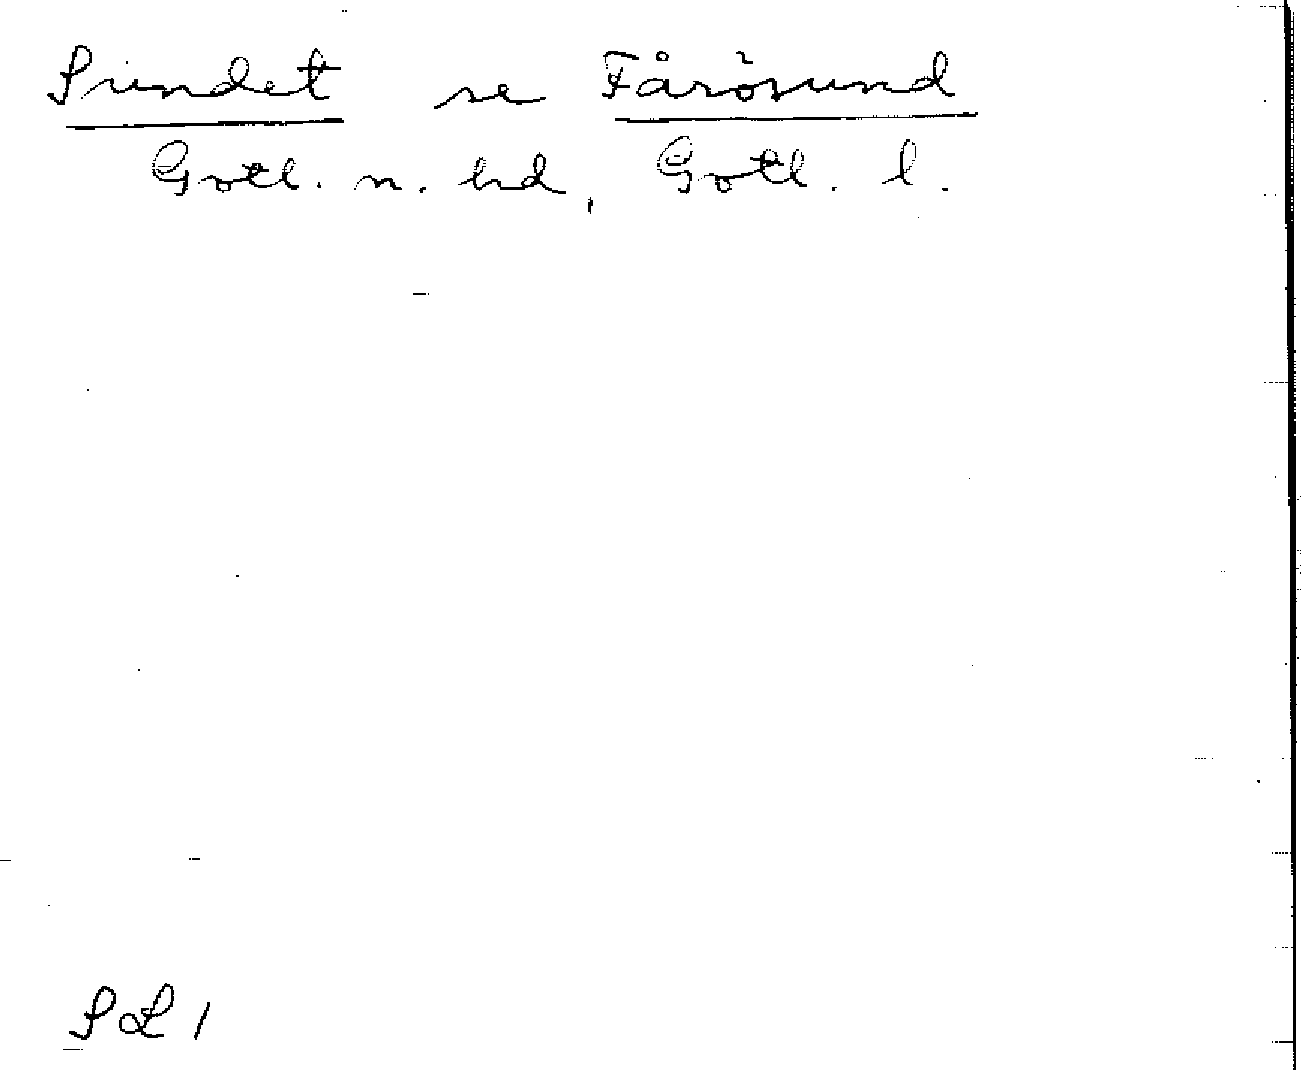 Sundet se Fårösund
Gotl. n. hd, Gotl. l.
SL 1